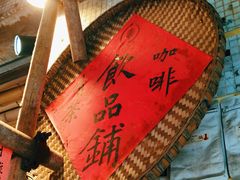 咖啡
飲品鋪
茶